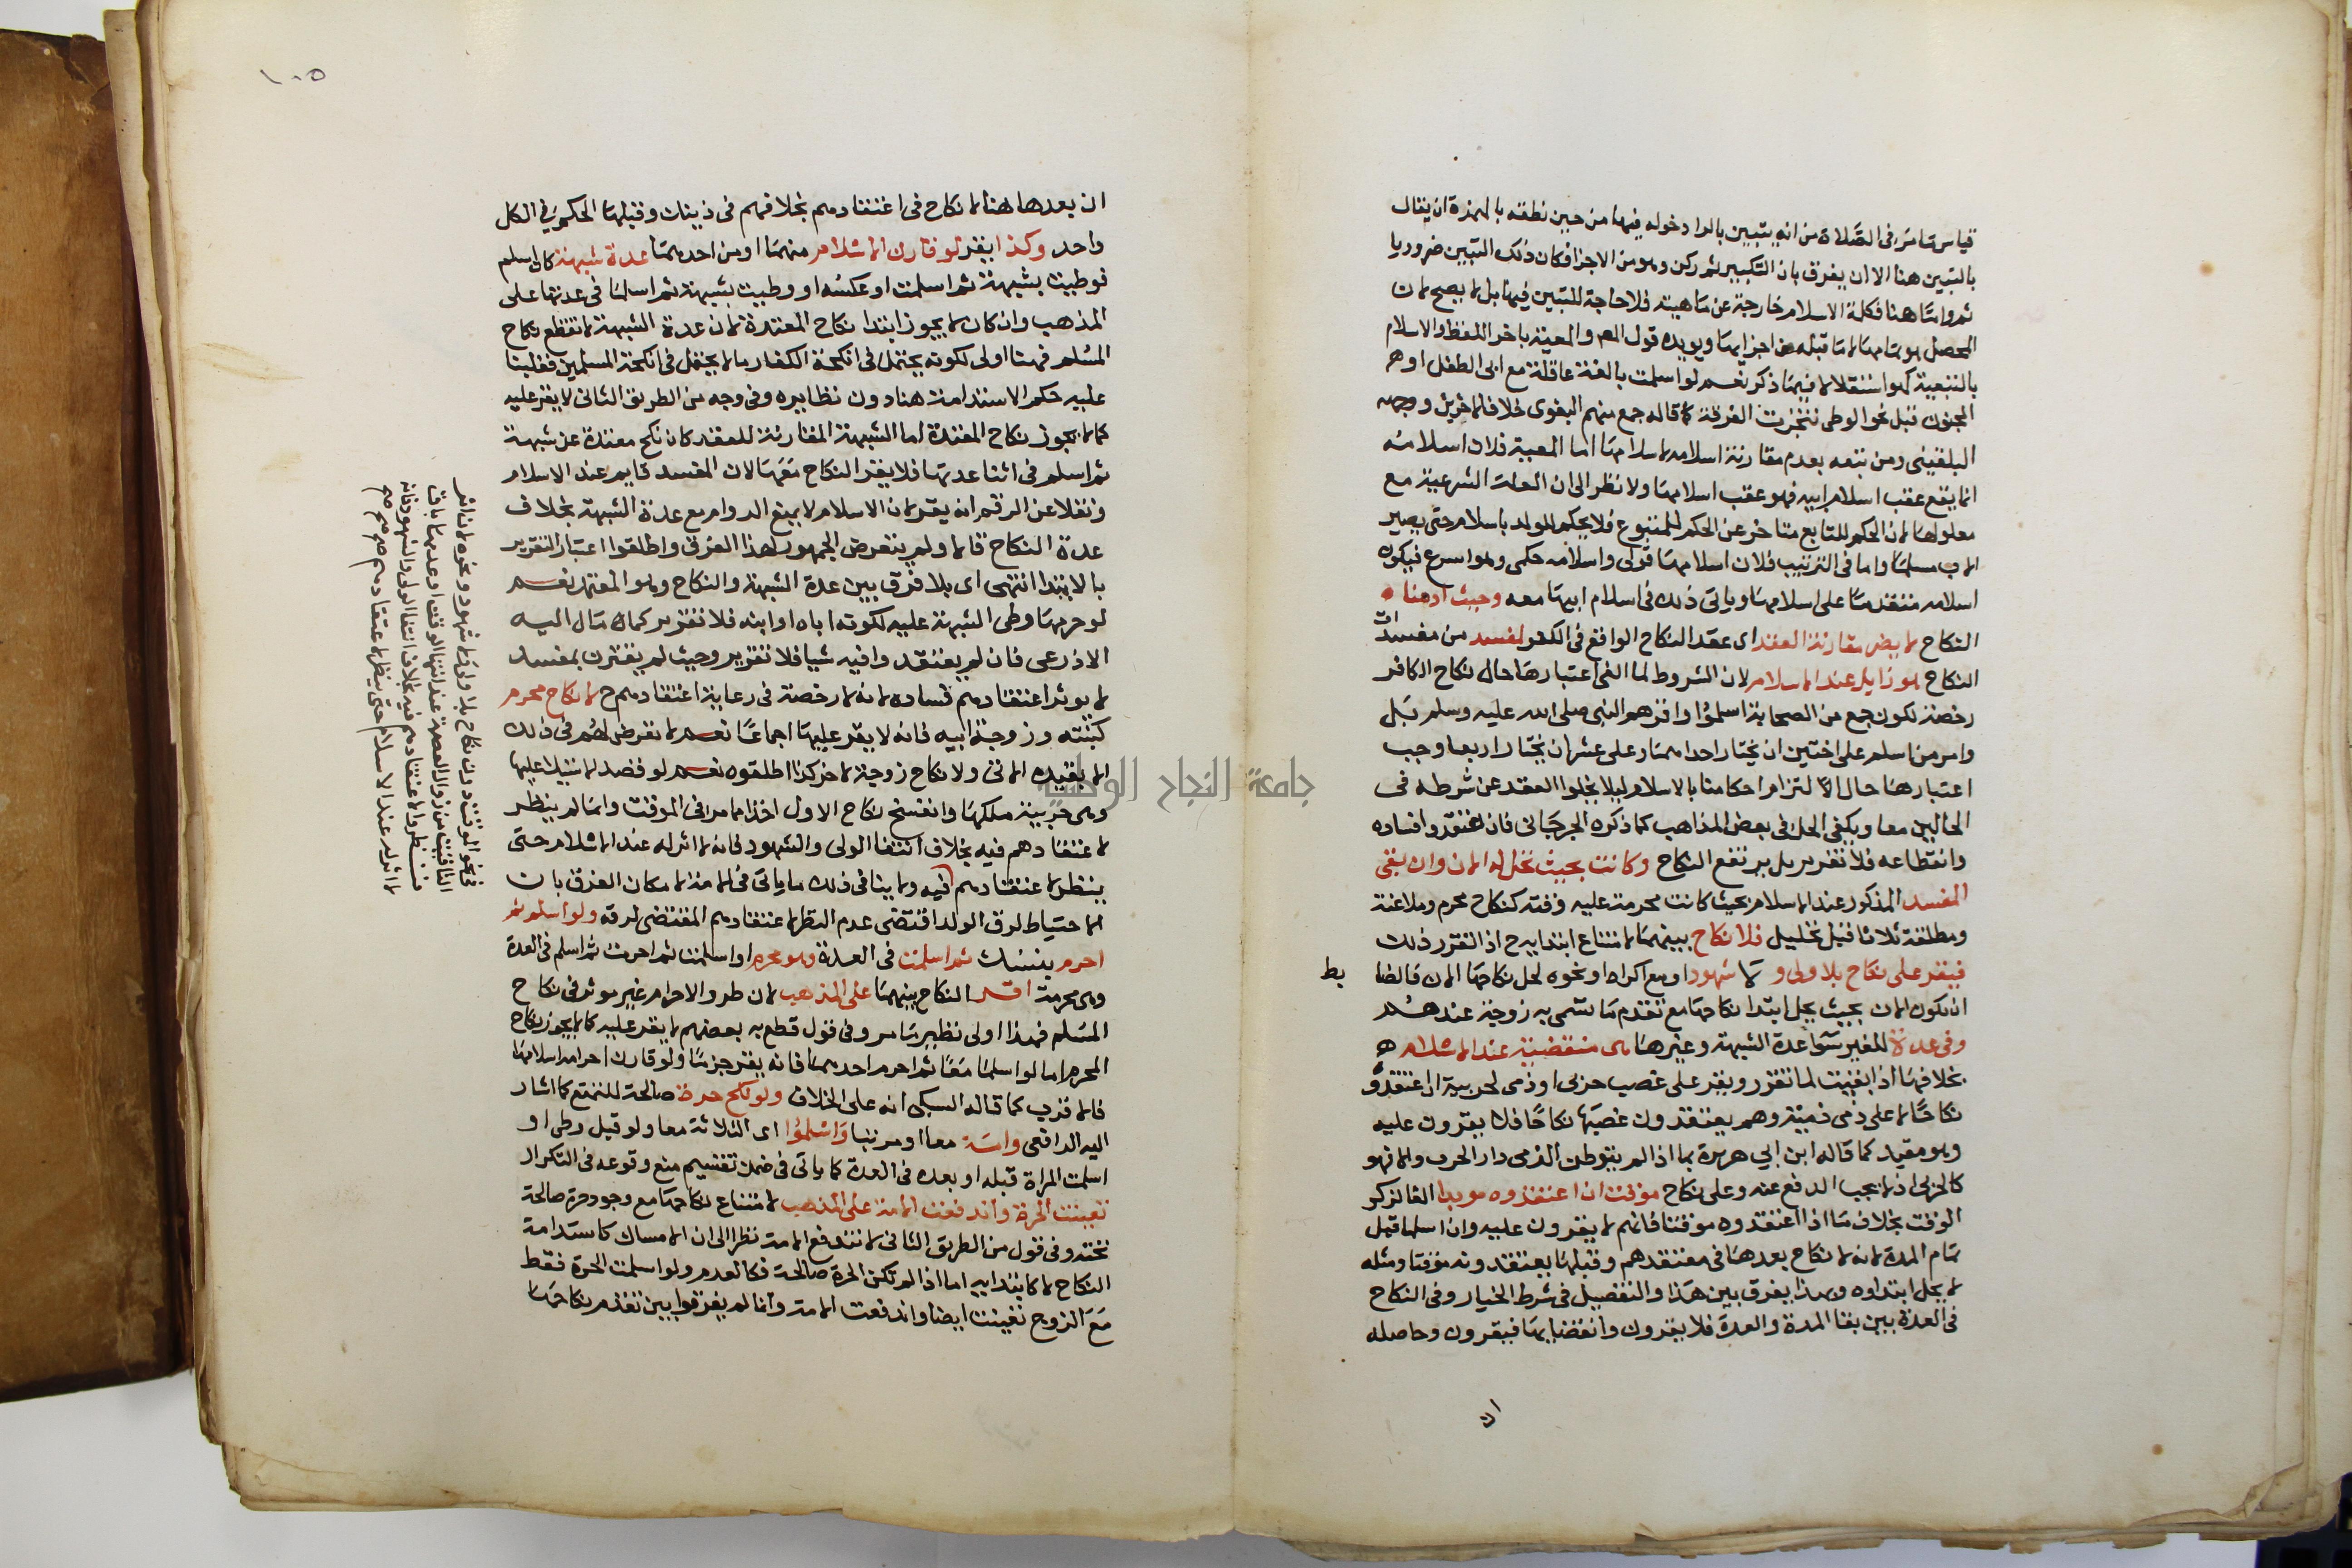 قياس ما مر في الصلاة من انه يتبين بالرا دخوله فيها من حين نطقه بالهمزة ان يقال
بالتبين هنا الا ان يفرق بان التكبير ثم ركن وهو من الاجزا فكان ذلك التبين ضروريا
ثم واما هنا فكلمة الاسلام خارجة عن ماهيته فلا حاجة للتبين فيها بل لا يصح لان
المحصل هو تمامها لا ما قبله من اجزايها ويويده قول المص والمعية باخر اللفظ والاسلام
بالتبعية كهو استقلالا فيما ذكر نعم لو اسلمت بالغة عاقلة مع ابي الطفل او هو
المجنون قبل نحو الوطي تنجزت الفرقة كما قاله جمع منهم البغوي خلافا لاخرين ووجهه
البلقيني ومن تبعه بعدم مقارنة اسلامه لاسلامها اما المعية فلان اسلامه
انما يقع عقب اسلام ابيه فهو عقب اسلامها ولا نظر الى ان العلة الشرعية مع
معلولها لان الحكم للتابع متاخر عن الحكم للمتبوع فلا يحكم للولد باسلام حتى يصير
الاب مسلما واما في الترتيب فلان اسلامها قولي واسلامه حكمي وهو اسرع فيكون
اسلامه متقدما على اسلامها وياتي ذلك في اسلام ابيها معه وحيث ادمنا
النكاح لا يضر مقارنة العقد اي عقد النكاح الواقع في الكفر لمفسد من مفسدات
النكاح هو زايل عند الاسلام لان الشروط لما الغي اعتبارها حال نكاح الكافر
رخصة لكون جمع من الصحابة اسلموا واقرهم النبي صلى الله عليه وسلم بل
وامر من اسلم على اختين ان يختار احداهما وعلى عشر ان يختار اربعا وجب
اعتبارها حال الالتزام احكامنا بالاسلام ليلا يخلوا العقد عن شرطه في
الحالين معا ويكفي الحل في بعض المذاهب كما ذكره الجرجاني فان اعتقدوا فساده
وانقطاعه فلا تقرير بل يرتفع النكاح وكانت بحيث تحل له الان وان بقي
المفسد المذكور عند الاسلام بحيث كانت محرمة عليه وقته كنكاح محرم وملاعنة
ومطلقة ثلاثا قبل تحليل فلا نكاح بينهما لامتناع ابتدايه ح اذا تقرر ذلك
فيقر على نكاح بلا ولي و لا شهود او مع اكراه او نحوه لحل نكاحها الان فالضا
بط
ان تكون الان بحيث يحل ابتدا نكاحها مع تقدم ما تسمى به زوجة عندهم
وفي عدة للغير سوا عدة الشبهة وغيرها هي منقضية عند الاسلام
بخلافها اذا بقيت لما تقرر ويقر على غصب حربي او ذمي لحربية ان اعتقدو
نكاحا لا على ذمي ذمية وهم يعتقدون غصبها نكاحا فلا يقرون عليه
وهو مقيد كما قاله ابن ابي هريرة بما اذا لم يتوطن الذمي دار الحرب والا فهو
كالحربي اذ لا يجب الدفع عنه وعلى نكاح موقت ان اعتقدوه موبدا الغا لذكر
الوقت بخلاف ما اذا اعتقدوه موقتا فانهم لا يقرون عليه وان اسلما قبل
تمام المدة لانه لا نكاح بعدها في معتقدهم وقبلها يعتقدونه موقتا ومثله
لا يحل ابتداوه وبهذا يفرق بين هذا والتفصيل في شرط الخيار وفي النكاح
في العدة بين بقا المدة والعدة فلا يقرون وانقضايها فيقرون وحاصله
ان
١٠٥
ان بعدها هنا لا نكاح في اعتقادهم بخلافهم في ذينك وقبلها الحكم في الكل
واحد وكذا يقر لو قارن الاسلام منهما او من احدهما عدة شبهة كان اسلم
فوطيت بشبهة ثم اسلمت او عكسه او وطيت بشبهة ثم اسلما في عدتها على
المذهب وان كان لا يجوز ابتدا نكاح المعتدة لان عدة الشبهة لا تقطع نكاح
المسلم فهنا اولى لكونه يحتمل في انكحة الكفار ما لا يحتمل في انكحة المسلمين فغلبنا
عليه حكم الاستدامة هنا دون نظايره وفي وجه من الطريق الثاني لا يقر عليه
كما لا يجوز نكاح المعتدة اما الشبهة المقارنة للعقد كان نكح معتدة عن شبهة
ثم اسلم في اثنا عدتها فلا يقر النكاح معها لان المفسد قايم عند الاسلام
ونقلا عن الرقم انه يقر لان الاسلام لا يمنع الدوام مع عدة الشبهة بخلاف
عدة النكاح قالا ولم يتعرض الجمهور لهذا الفرق واطلقوا اعتبار التقرير
بالابتدا انتهى اي بلا فرق بين عدة الشبهة والنكاح وهو المعتمد نعم
لو حرمها وطي الشبهة عليه لكونه اباه او ابنه فلا تقرير كما مال اليه
الاذرعي فان لم يعتقدوا فيه شيا فلا تقرير وحيث لم يقترن بمفسد
لا يوثر اعتقادهم فساده لانه لا رخصة في رعاية اعتقادهم ح لا نكاح محرم
كبنته وزوجة ابيه فانه لا يقر عليها اجماعا نعم لا نتعرض لهم في ذلك
الا بقيده الاتي ولا نكاح زوجة لاخر كذا اطلقوه نعم لو قصد الاستيلا عليها
وهي حربية ملكها وانفسخ نكاح الاول اخذا مما مر في الموقت وانما لم ينظر
لاعتقادهم فيه بخلاف انتفا الولي والشهود لانه لا اثر له عند الاسلام حتى
ينظر لاعتقادهم فيه ولا ينافي ذلك ما ياتي في الامة لامكان الفرق بان
الاحتياط لرق الولد اقتضى عدم النظر لاعتقادهم المقتضي لرقه ولو اسلم ثم
احرم بنسك ثم اسلمت في العدة وهو محرم او اسلمت ثم احرمت ثم اسلم في العدة
وهي محرمة اقر النكاح بينهما على المذهب لان طرو الاحرام غير موثر في نكاح
المسلم فهذا اولى نظير ما مر وفي قول قطع به بعضهم لا يقر عليه كما لا يجوز نكاح
المحرم اما لو اسلما معا ثم احرم احدهما فانه يقر جزما ولو قارن احرامه اسلامها
فالاقرب كما قاله السبكي انه على الخلاف ولو نكح حرة صالحة للتمتع كما اشار
اليه الرافعي وامة معا او مرتبا واسلموا اي الثلاثة معا ولو قبل وطي او
اسلمت المراة قبله او بعده في العدة كما ياتي في ضمن تقسيم منع وقوعه في التكرار
تعينت الحرة واندفعت الامة على المذهب لامتناع نكاحها مع وجود حرة صالحة
تحته وفي قول من الطريق الثاني لا تندفع الامة نظرا الى ان الامساك كاستدامة
النكاح لا كابتدايه اما اذا لم تكن الحرة صالحة فكالعدم ولو اسلمت الحرة فقط
مع الزوج تعينت ايضا واندفعت الامة وانما لم يفرقوا بين تقدم نكاحها
في نحو الموقت دون نكاح بلا ولي ولا شهود ونحوه لان اثر
التاقيت من زوال العصمة عند انتها الوقت او عدمها باق
فنظروا لاعتقادهم فيه بخلاف انتفا الولي والشهود فانه
لا اثر له عند الاسلام حتى ينظر لاعتقادهم صح صح صح
جامعة النجاح الوطنية